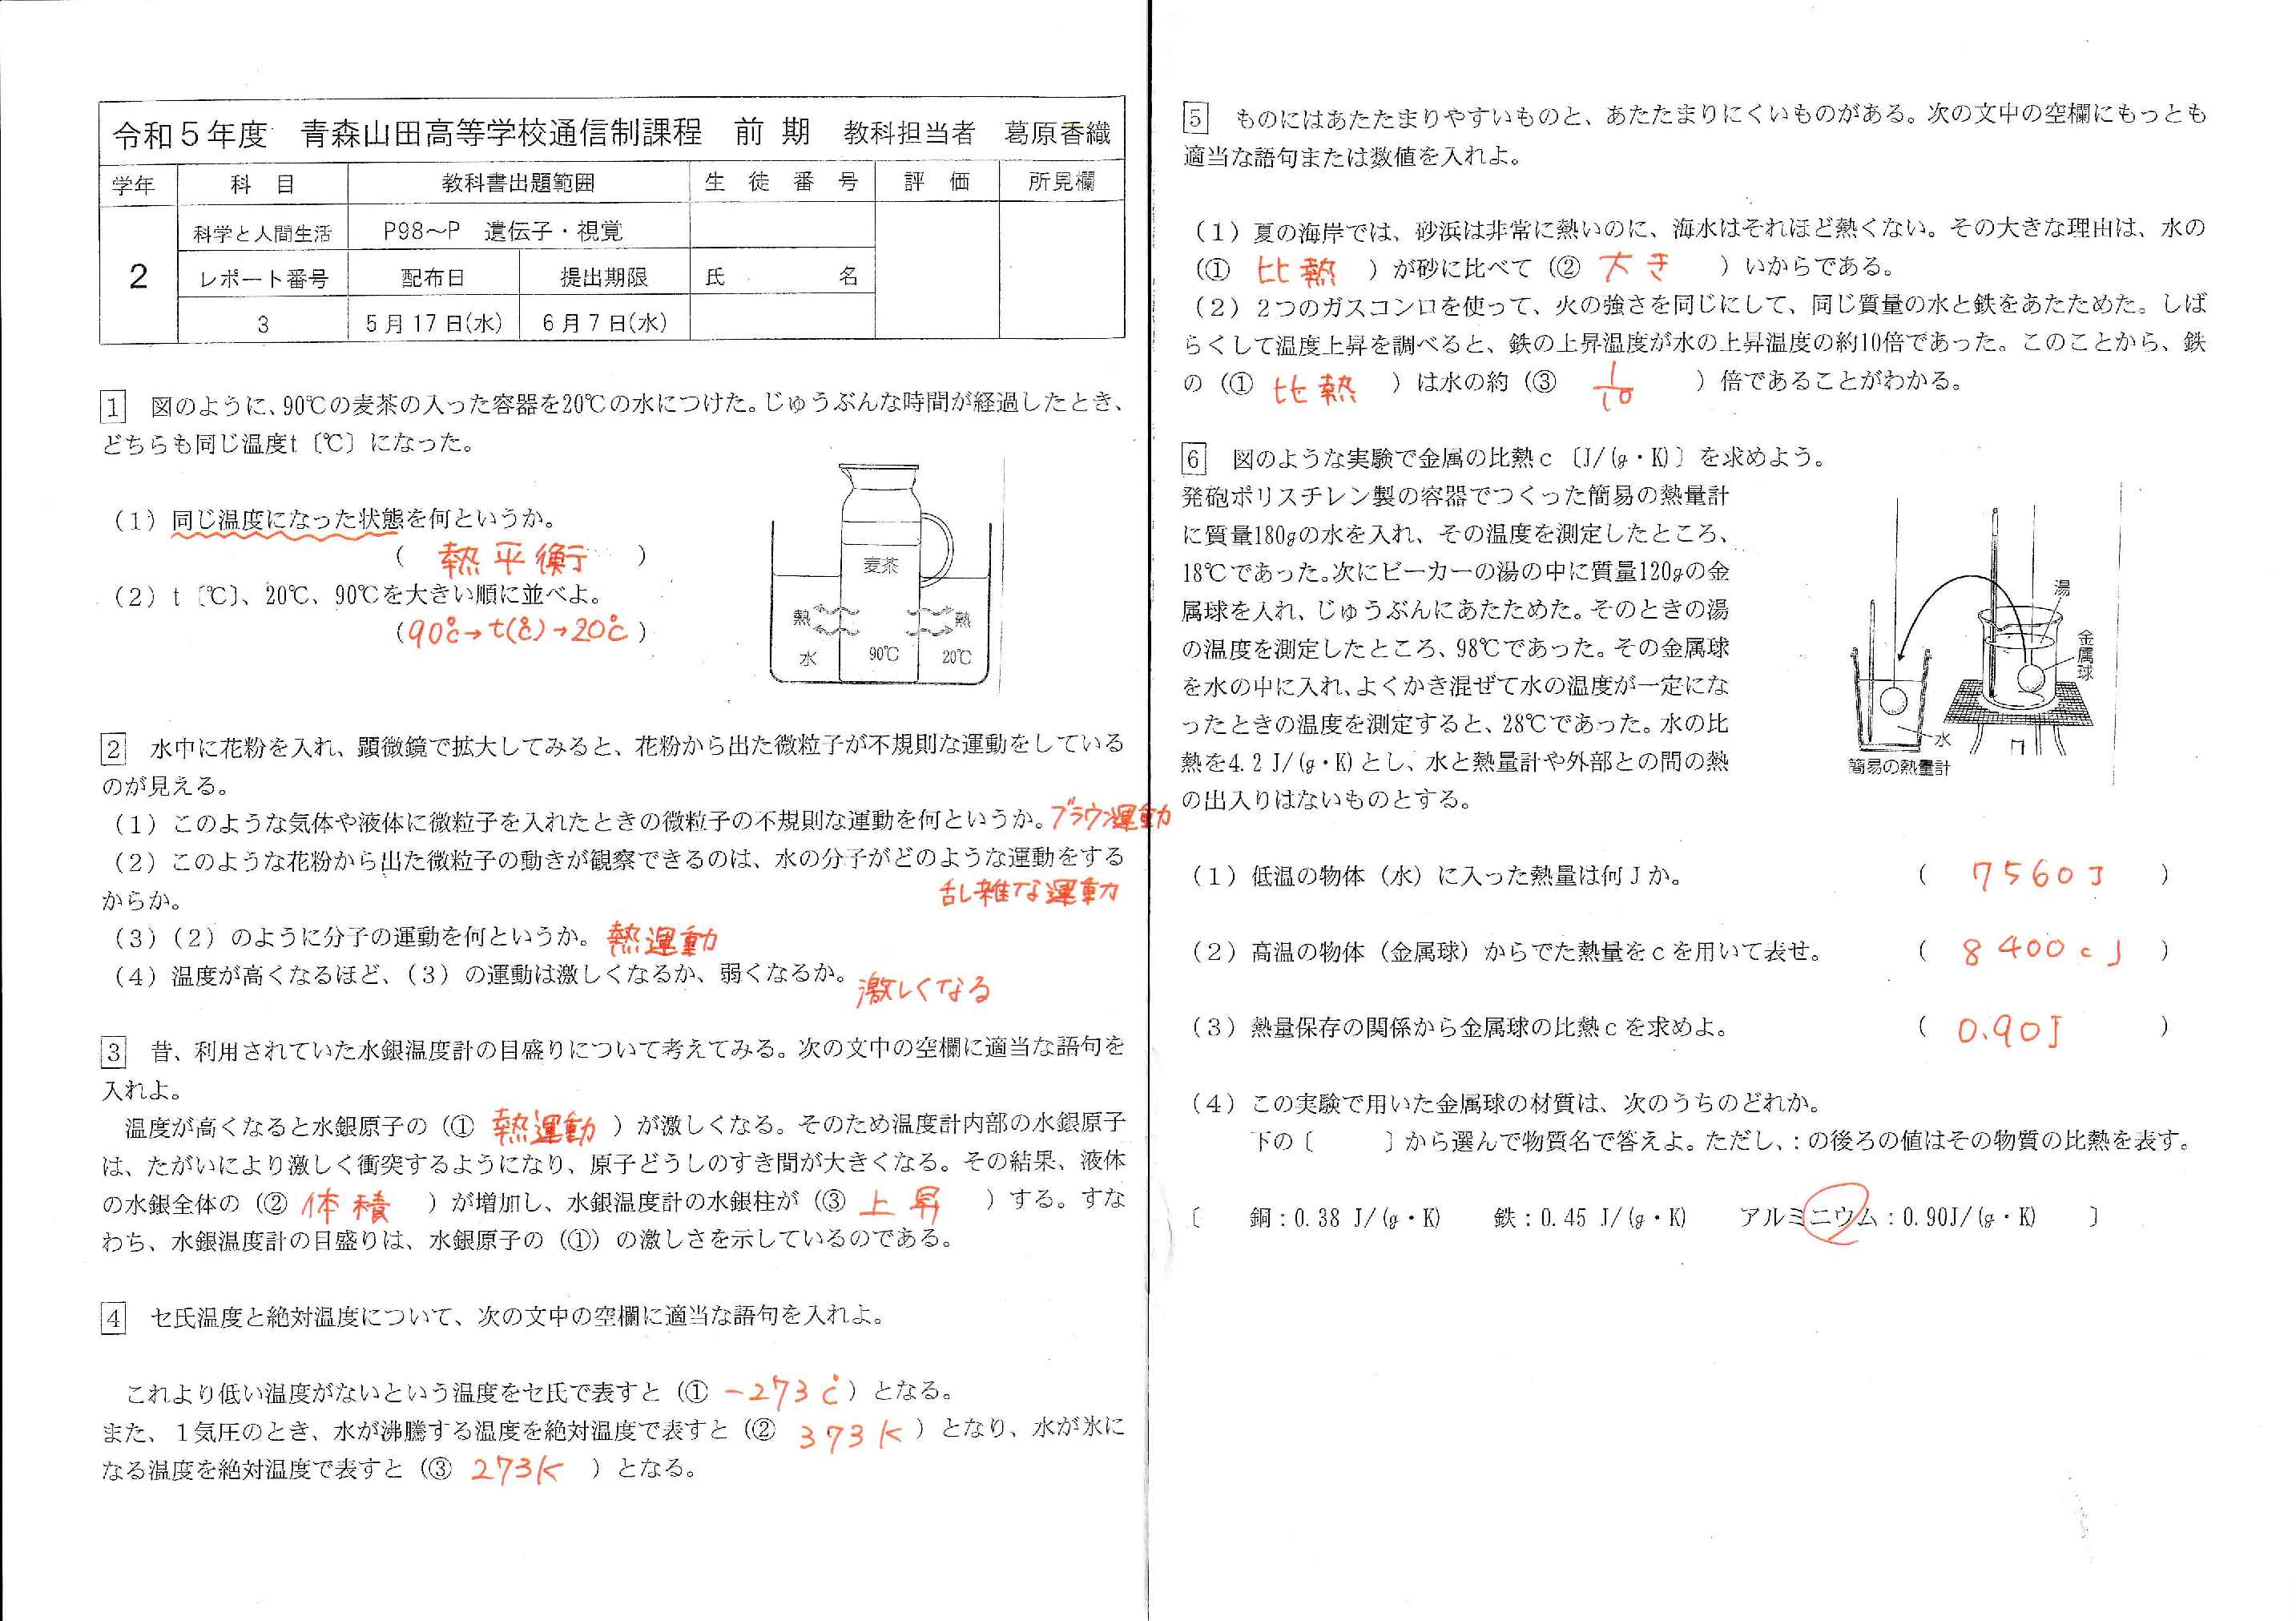 令和5年度　青森山田高等学校通信制課程　前 期　教科担当者　葛原香織
学年　科 目　教科書出題範囲　生 徒 番 号　評 価　所見欄
2　科学と人間生活　P98～P　遺伝子・視覚
レポート番号　配布日　提出期限　氏　名
3　5月17日(水)　6月7日(水)
1　図のように、90℃の麦茶の入った容器を20℃の水につけた。じゅうぶんな時間が経過したとき、
どちらも同じ温度t〔℃〕になった。
（1）同じ温度になった状態を何というか。
（ 熱平衡 ）
（2）t〔℃〕、20℃、90℃を大きい順に並べよ。
（90℃→t(℃)→20℃）
麦茶
熱　熱
水　90℃　20℃
2　水中に花粉を入れ、顕微鏡で拡大してみると、花粉から出た微粒子が不規則な運動をしている
のが見える。
（1）このような気体や液体に微粒子を入れたときの微粒子の不規則な運動を何というか。ブラウン運動
（2）このような花粉から出た微粒子の動きが観察できるのは、水の分子がどのような運動をする
からか。　乱雑な運動
（3）（2）のように分子の運動を何というか。熱運動
（4）温度が高くなるほど、（3）の運動は激しくなるか、弱くなるか。激しくなる
3　昔、利用されていた水銀温度計の目盛りについて考えてみる。次の文中の空欄に適当な語句を
入れよ。
温度が高くなると水銀原子の（① 熱運動 ）が激しくなる。そのため温度計内部の水銀原子
は、たがいにより激しく衝突するようになり、原子どうしのすき間が大きくなる。その結果、液体
の水銀全体の（② 体積 ）が増加し、水銀温度計の水銀柱が（③ 上昇 ）する。すな
わち、水銀温度計の目盛りは、水銀原子の（①）の激しさを示しているのである。
4　セ氏温度と絶対温度について、次の文中の空欄に適当な語句を入れよ。
これより低い温度がないという温度をセ氏で表すと（① -273℃）となる。
また、1気圧のとき、水が沸騰する温度を絶対温度で表すと（② 373K ）となり、水が氷に
なる温度を絶対温度で表すと（③ 273K ）となる。
5　ものにはあたたまりやすいものと、あたたまりにくいものがある。次の文中の空欄にもっとも
適当な語句または数値を入れよ。
（1）夏の海岸では、砂浜は非常に熱いのに、海水はそれほど熱くない。その大きな理由は、水の
（① 比熱 ）が砂に比べて（② 大き ）いからである。
（2）2つのガスコンロを使って、火の強さを同じにして、同じ質量の水と鉄をあたためた。しば
らくして温度上昇を調べると、鉄の上昇温度が水の上昇温度の約10倍であった。このことから、鉄
の（① 比熱 ）は水の約（③ 1/10 ）倍であることがわかる。
6　図のような実験で金属の比熱c〔J/(g・K)〕を求めよう。
発砲ポリスチレン製の容器でつくった簡易の熱量計
に質量180gの水を入れ、その温度を測定したところ、
18℃であった。次にビーカーの湯の中に質量120gの金
属球を入れ、じゅうぶんにあたためた。そのときの湯
の温度を測定したところ、98℃であった。その金属球
を水の中に入れ、よくかき混ぜて水の温度が一定にな
ったときの温度を測定すると、28℃であった。水の比
熱を4.2 J/(g・K)とし、水と熱量計や外部との間の熱
の出入りはないものとする。
湯
金属球
水
簡易の熱量計
（1）低温の物体（水）に入った熱量は何Jか。　（ 7560J ）
（2）高温の物体（金属球）からでた熱量をcを用いて表せ。　（ 8400cJ ）
（3）熱量保存の関係から金属球の比熱cを求めよ。　（ 0.90J ）
（4）この実験で用いた金属球の材質は、次のうちのどれか。
下の〔　　〕から選んで物質名で答えよ。ただし、：の後ろの値はその物質の比熱を表す。
〔　銅：0.38 J/(g・K)　鉄：0.45 J/(g・K)　アルミニウム：0.90J/(g・K)　〕